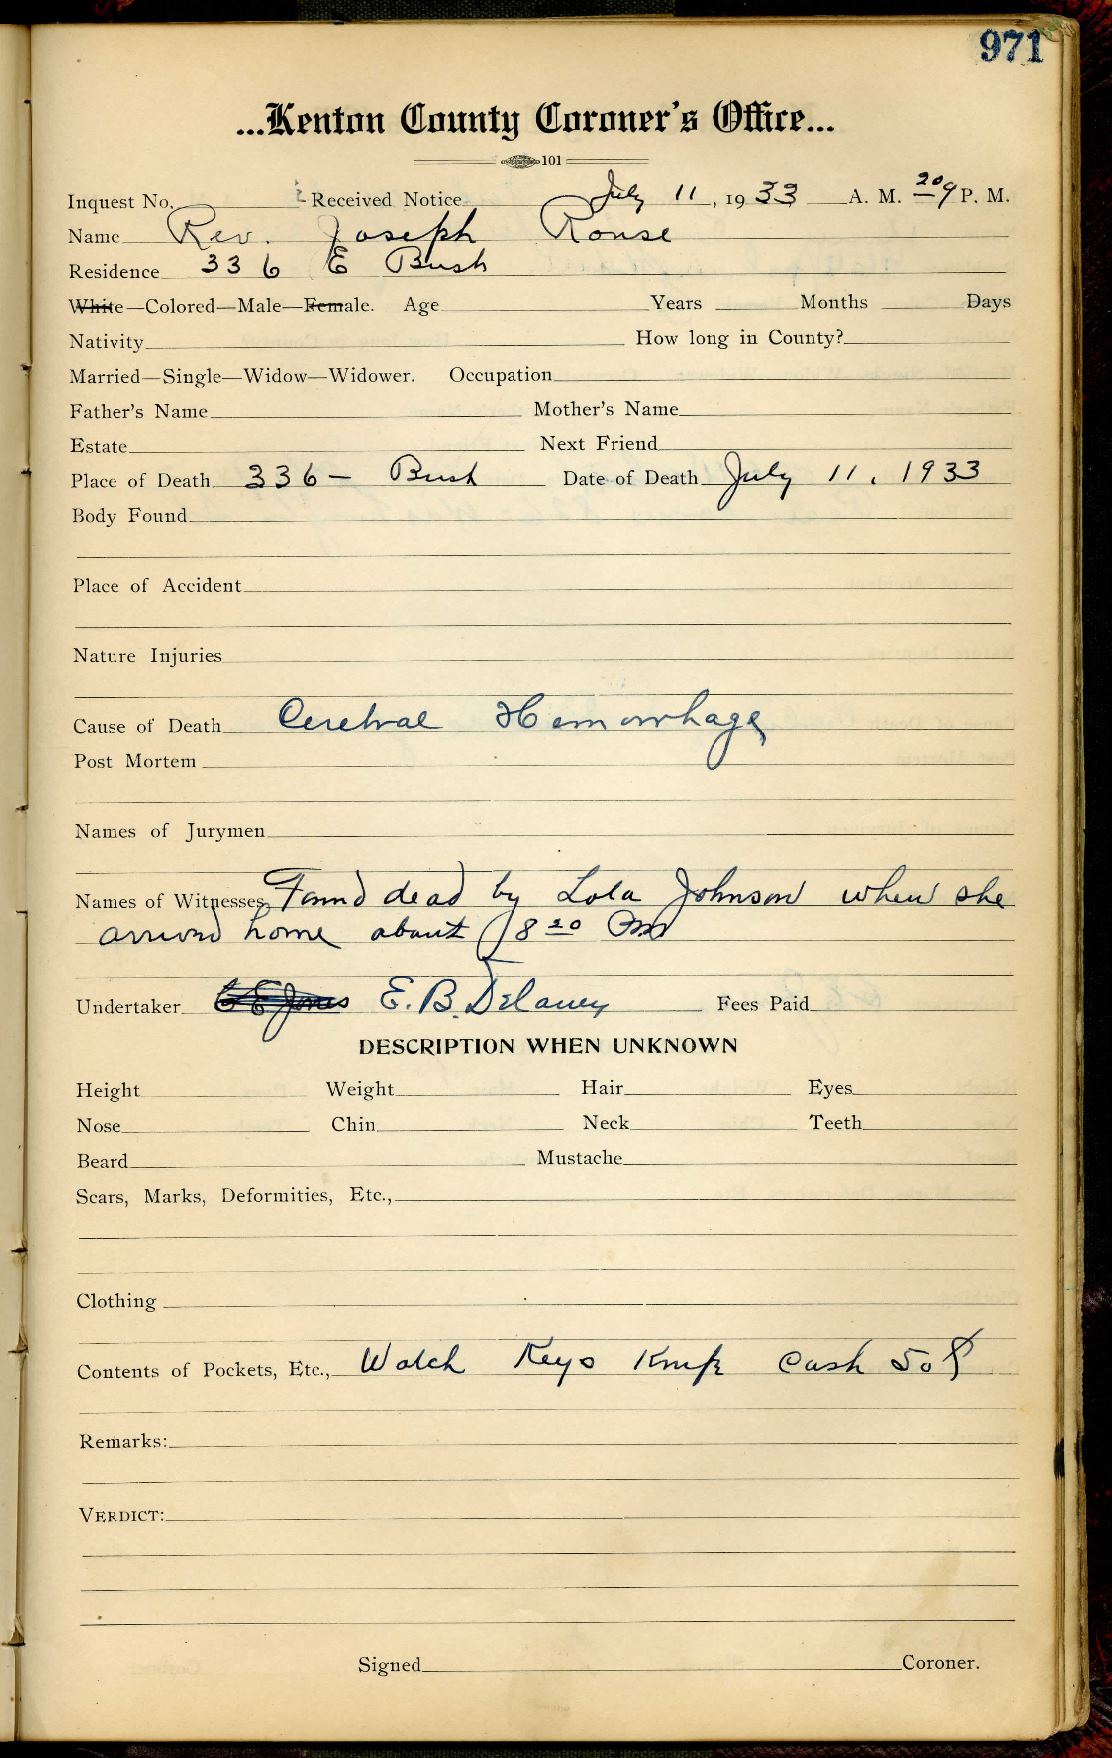 971
...Kenton County Coroner's Office...
101
Inquest No. Received Notice July 11, 1933 A. M. 20 9 P. M.
Name Rev. Joseph Rouse
Residence 336 E Bush
White—Colored—Male—Female. Age Years Months Days
Nativity How long in County?
Married—Single—Widow—Widower. Occupation
Father's Name Mother's Name
Estate Next Friend
Place of Death 336 - Bush Date of Death July 11, 1933
Body Found
Place of Accident
Nature Injuries
Cause of Death Cerebral Hemorrhage
Post Mortem
Names of Jurymen
Names of Witnesses, Found dead by Lola Johnson when she
arrived home about 8 20 PM
Undertaker C E Jones E. B. Delaney Fees Paid
DESCRIPTION WHEN UNKNOWN
Height Weight Hair Eyes
Nose Chin Neck Teeth
Beard Mustache
Scars, Marks, Deformities, Etc.,
Clothing
Contents of Pockets, Etc., Watch Keys Knife Cash 50¢
Remarks:
VERDICT:
Signed Coroner.